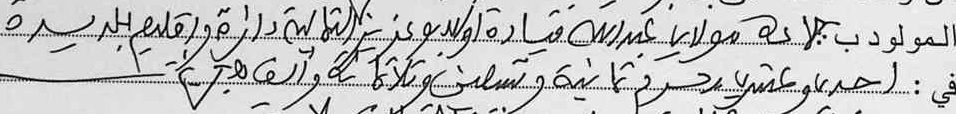 المولود ب جماعة مولاي عبد الله قيادة اولاد بوعزيز الشمالية دائرة واقليم الجديدة
في : احدى وعشرين محرم ثمانية وتسعين وثلاثمائة وألف هجرية